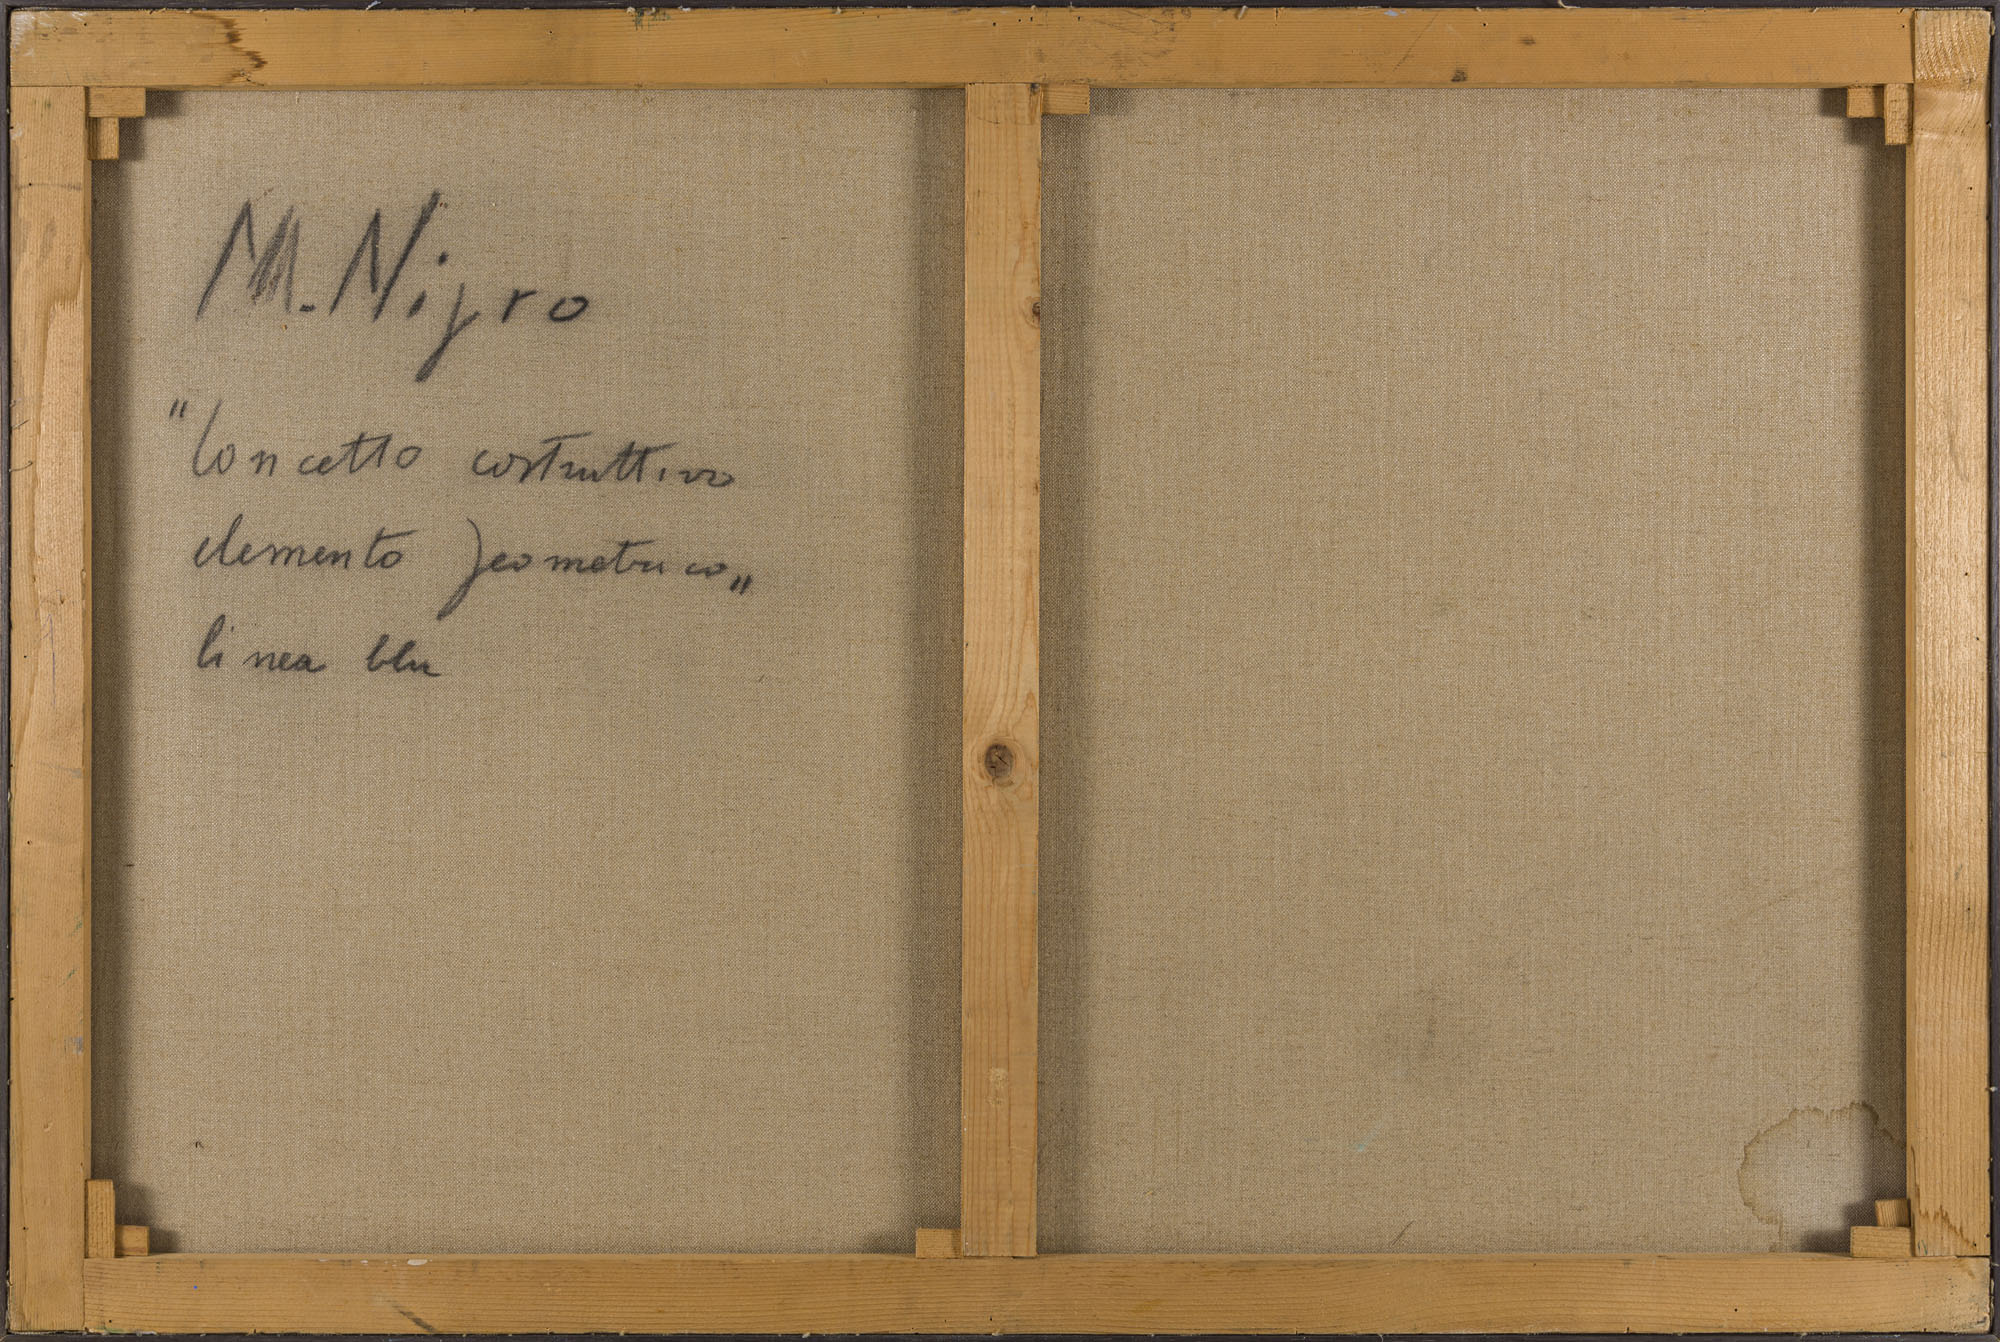 M. Nigro
"Concetto costruttivo
elemento geometrico"
linea blu